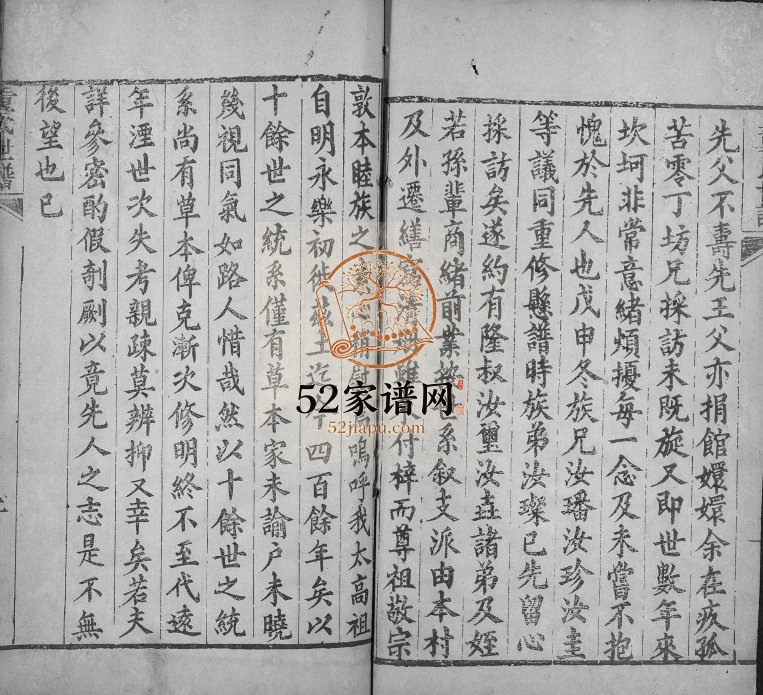 先父不壽先王父亦捐館嬛嬛余在疚孤
苦零丁坊兄採訪未既旋又即世數年來
坎坷非常意緒煩擾每一念及未嘗不抱
愧於先人也戊申冬族兄汝璠汝珍汝圭
等議同重修縣譜時族弟汝璨已先留心
採訪矣遂約有隆叔汝璽汝垚諸弟及姪
若孫輩商緒前業 系叙支派由本村
及外遷繕 付梓而尊祖敬宗
敦本睦族之 嗚呼我太高祖
自明永樂初徙茲土迄 四百餘年矣以
十餘世之統系僅有草本家未諭戶未曉
幾視同氣如路人惜哉然以十餘世之統
系尚有草本俾克漸次修明終不至代遠
年湮世次失考親疎莫辨抑又幸矣若夫
詳參密酌假剞劂以竟先人之志是不無
後望也已
世譜
52家谱网
52jiapu.com